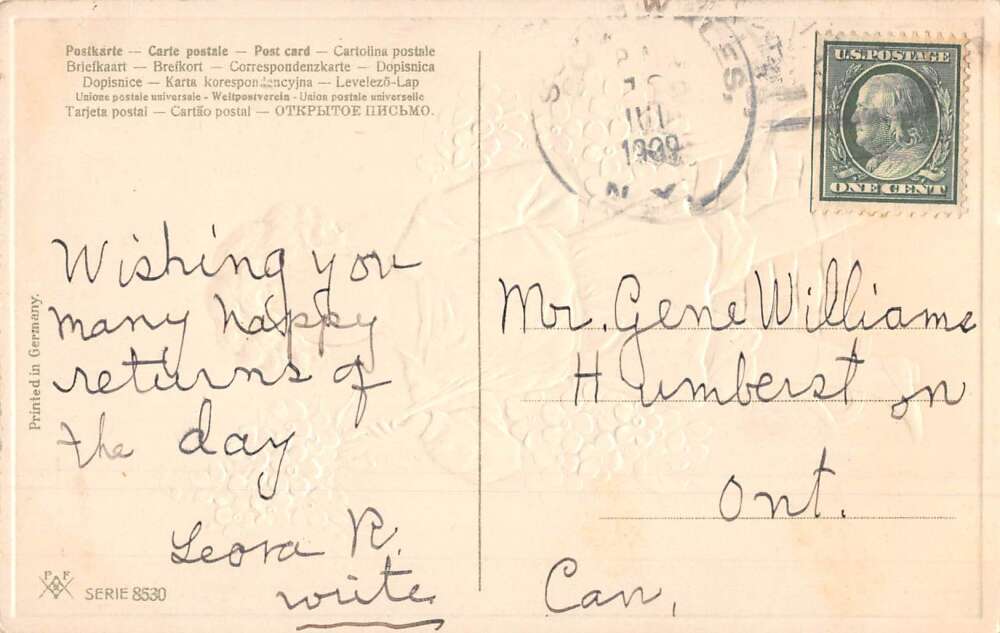 Postkarte — Carte postale — Post card — Cartolina postale
Briefkaart — Brefkort — Correspondenzkarte — Dopisnica
Dopisnice — Karta korespondencyjna — Levelező-Lap
Unione postale universale - Weltpostverein - Union postale universelle
Tarjeta postal — Cartão postal — ОТКРЫТОЕ ПИСЬМО.
JUL
1909
N.Y.
U.S. POSTAGE
ONE CENT
Wishing you
many happy
returns of
the day
Leora R.
write
Mr. Gene Williams
Humberst on
Ont.
Can,
Printed in Germany.
P F
SERIE 8530